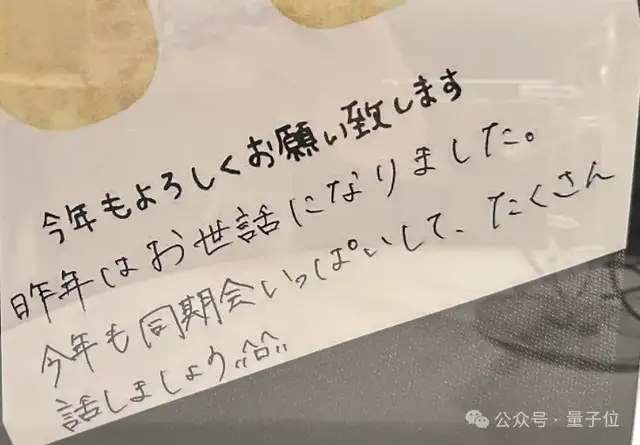 今年もよろしくお願い致します
昨年はお世話になりました。
今年も同期会いっぱいして、たくさん
話しましょう
公众号・量子位